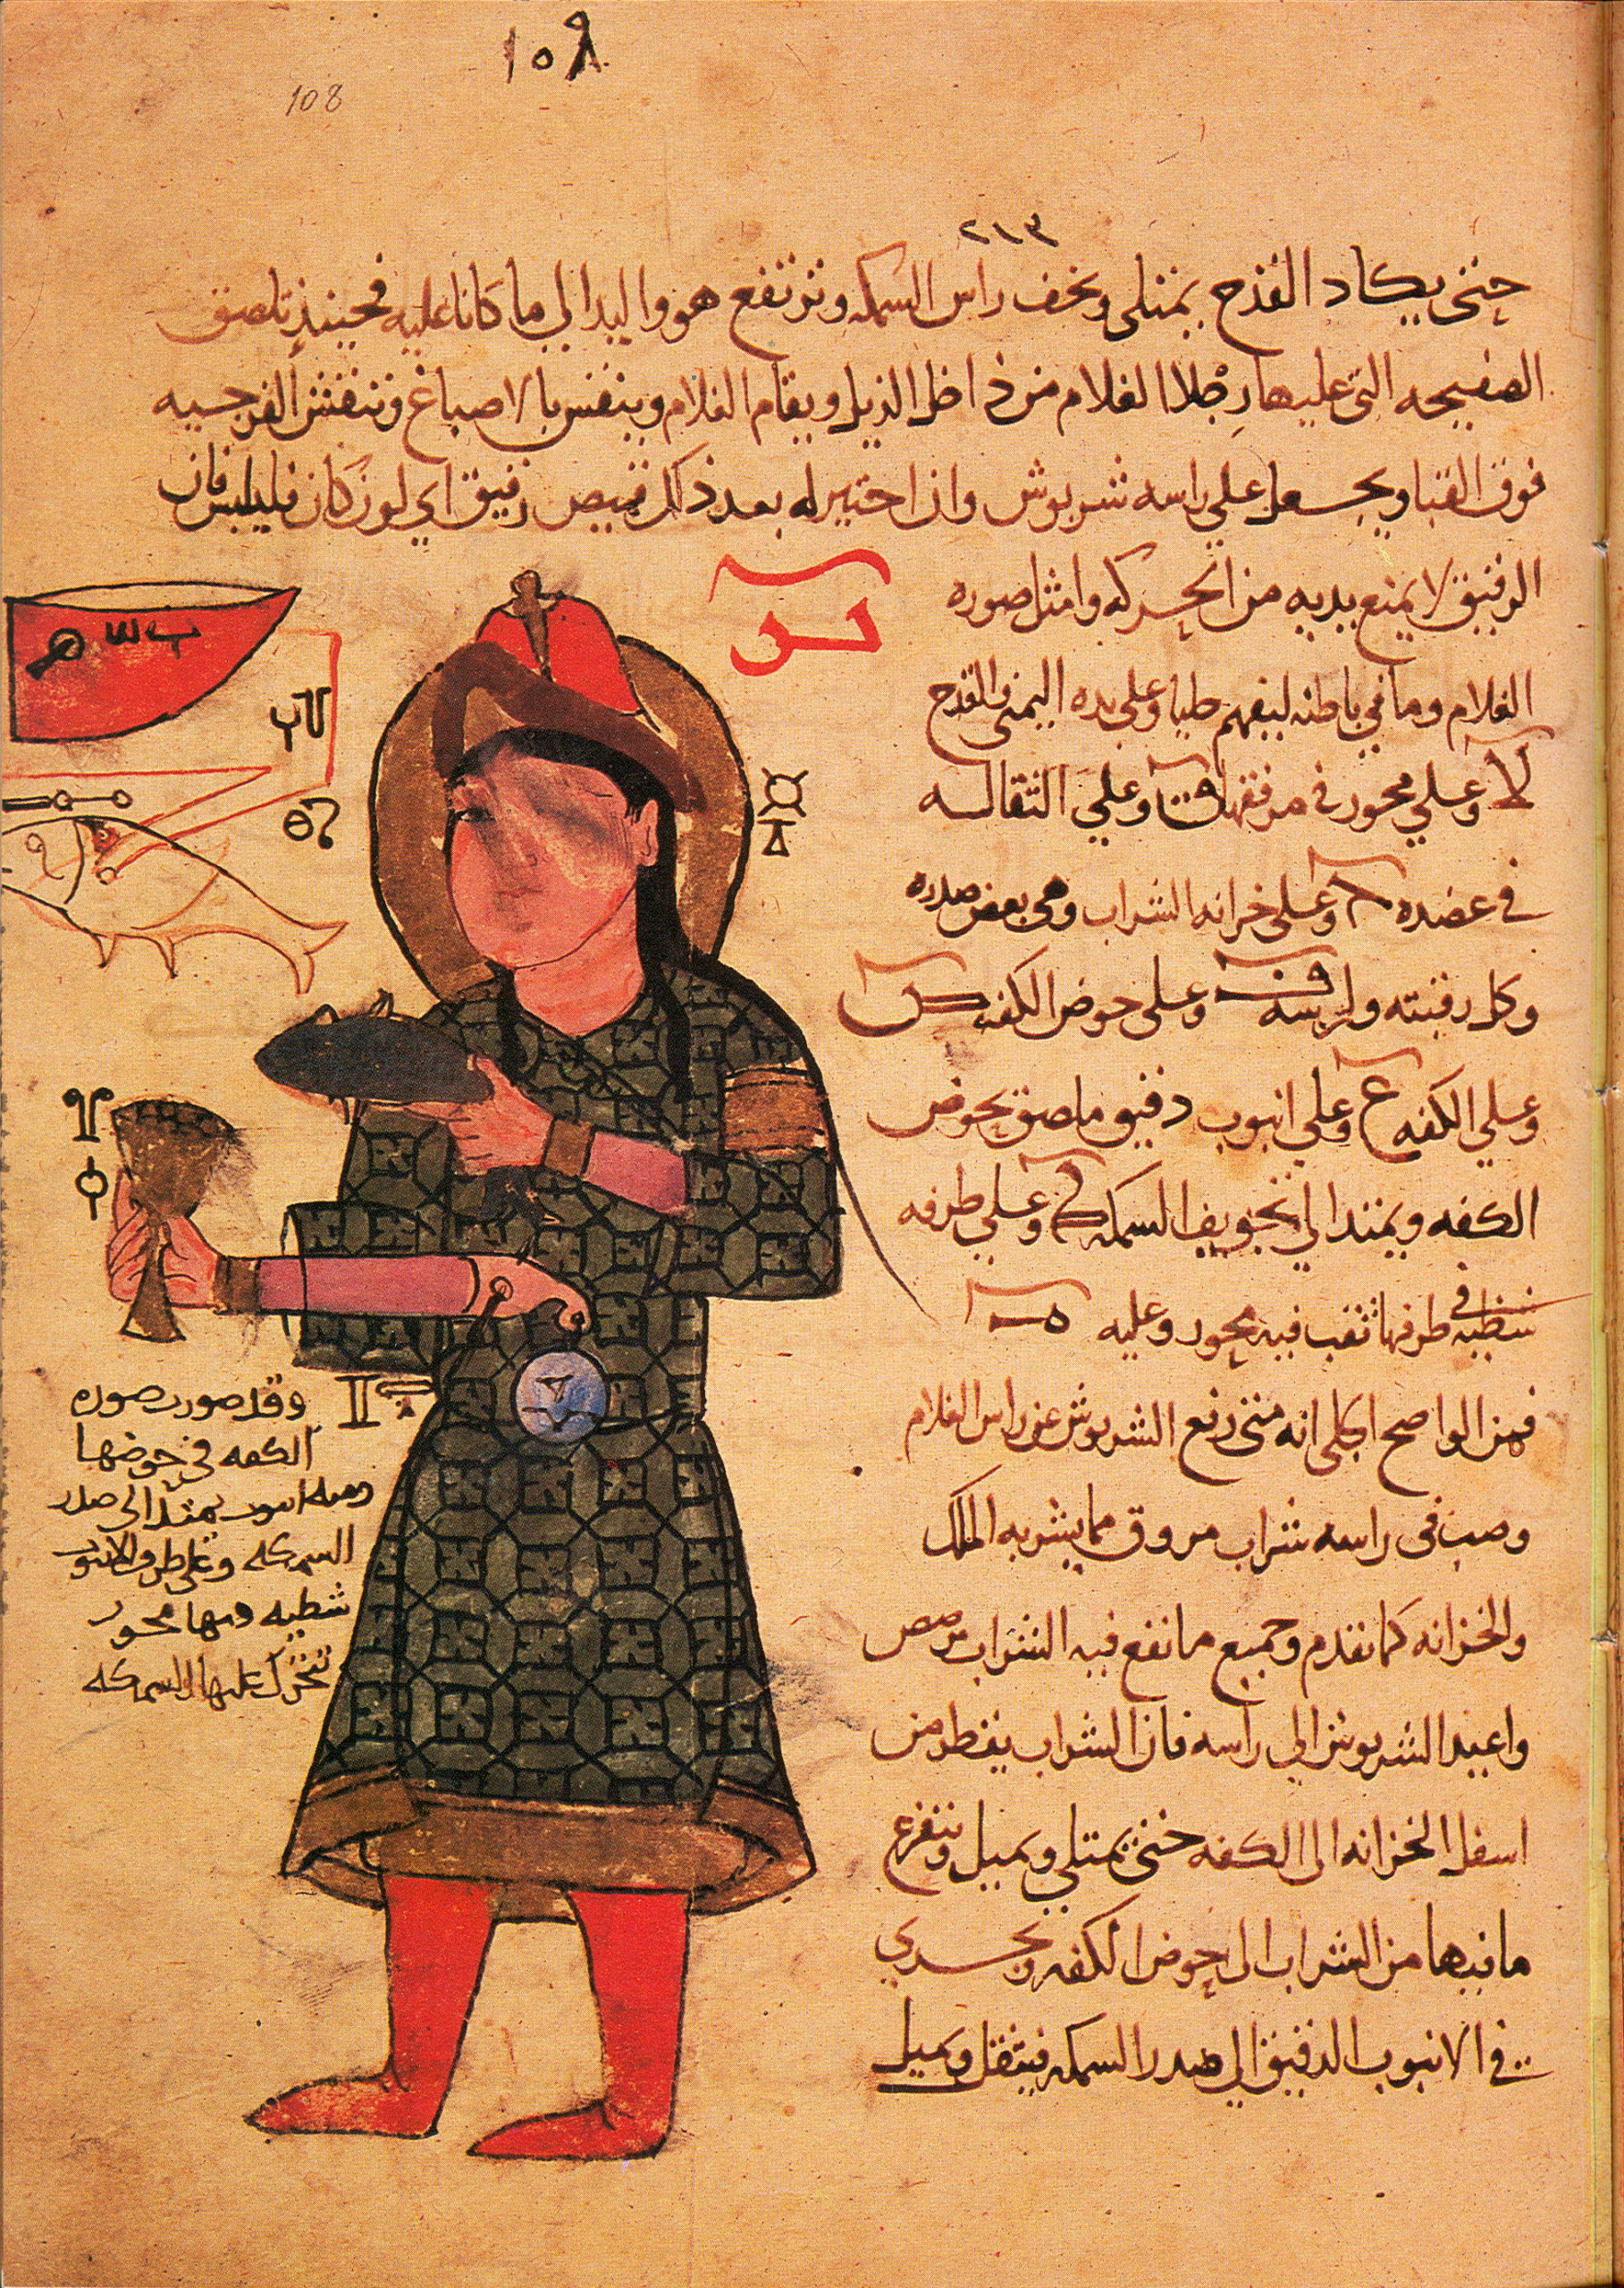 108
108
٢١٣
حتى يكاد القدح يمتلى ويخف راس السمكه وترتفع هو واليد الى ما كانا عليه فحينئذ تلصق
الصفيحه التى عليها رجلا الغلام من داخل الذيل ويقام الغلام وينقش بالاصباغ وتنقش الفرجيه
فوق القبا ويجعل على راسه شربوش وان اختير له بعد ذلك قميص رقيق اي لون كان فليلبس فان
الرقيق لا يمنع يديه من الحركه وامثل صوره
الغلام وما في باطنه ليفهم جليا وعلى يده اليمنى والقدح
لا وعلى محور في مرفقها ف وعلى الثقاله
في عضده ح وعلى خزانه الشراب وهي بعض صدره
وكل رقبته وراسه ف وعلى حوض الكفه س
وعلى الكفه ع وعلى انبوب دقيق ملصق بحوض
الكفه ويمتد الى تجويف السمكه ك وعلى طرفه
شظيه في طرفها ثقب فيه محور وعليه ه
فمن الواضح الجلي انه متى رفع الشربوش عن راس الغلام
وصب في راسه شراب مروق مما يشربه الملك
والخزانه كما تقدم وجميع ما تقع فيه الشراب مرصص
واعيد الشربوش الى راسه فان الشراب يقطر من
اسفل الخزانه الى الكفه حتى تمتلي وتميل وتتفرغ
ما فيها من الشراب الى حوض الكفه ويجري
في الانبوب الدقيق الى صدر السمكه فيثقل ويميل
وقد صورت صوره
الكفه في حوضها
ومنه انبوب يمتد الى صدر
السمكه وعلى طرف الانبوب
شظيه وبها محور
تتحرك عليها السمكه